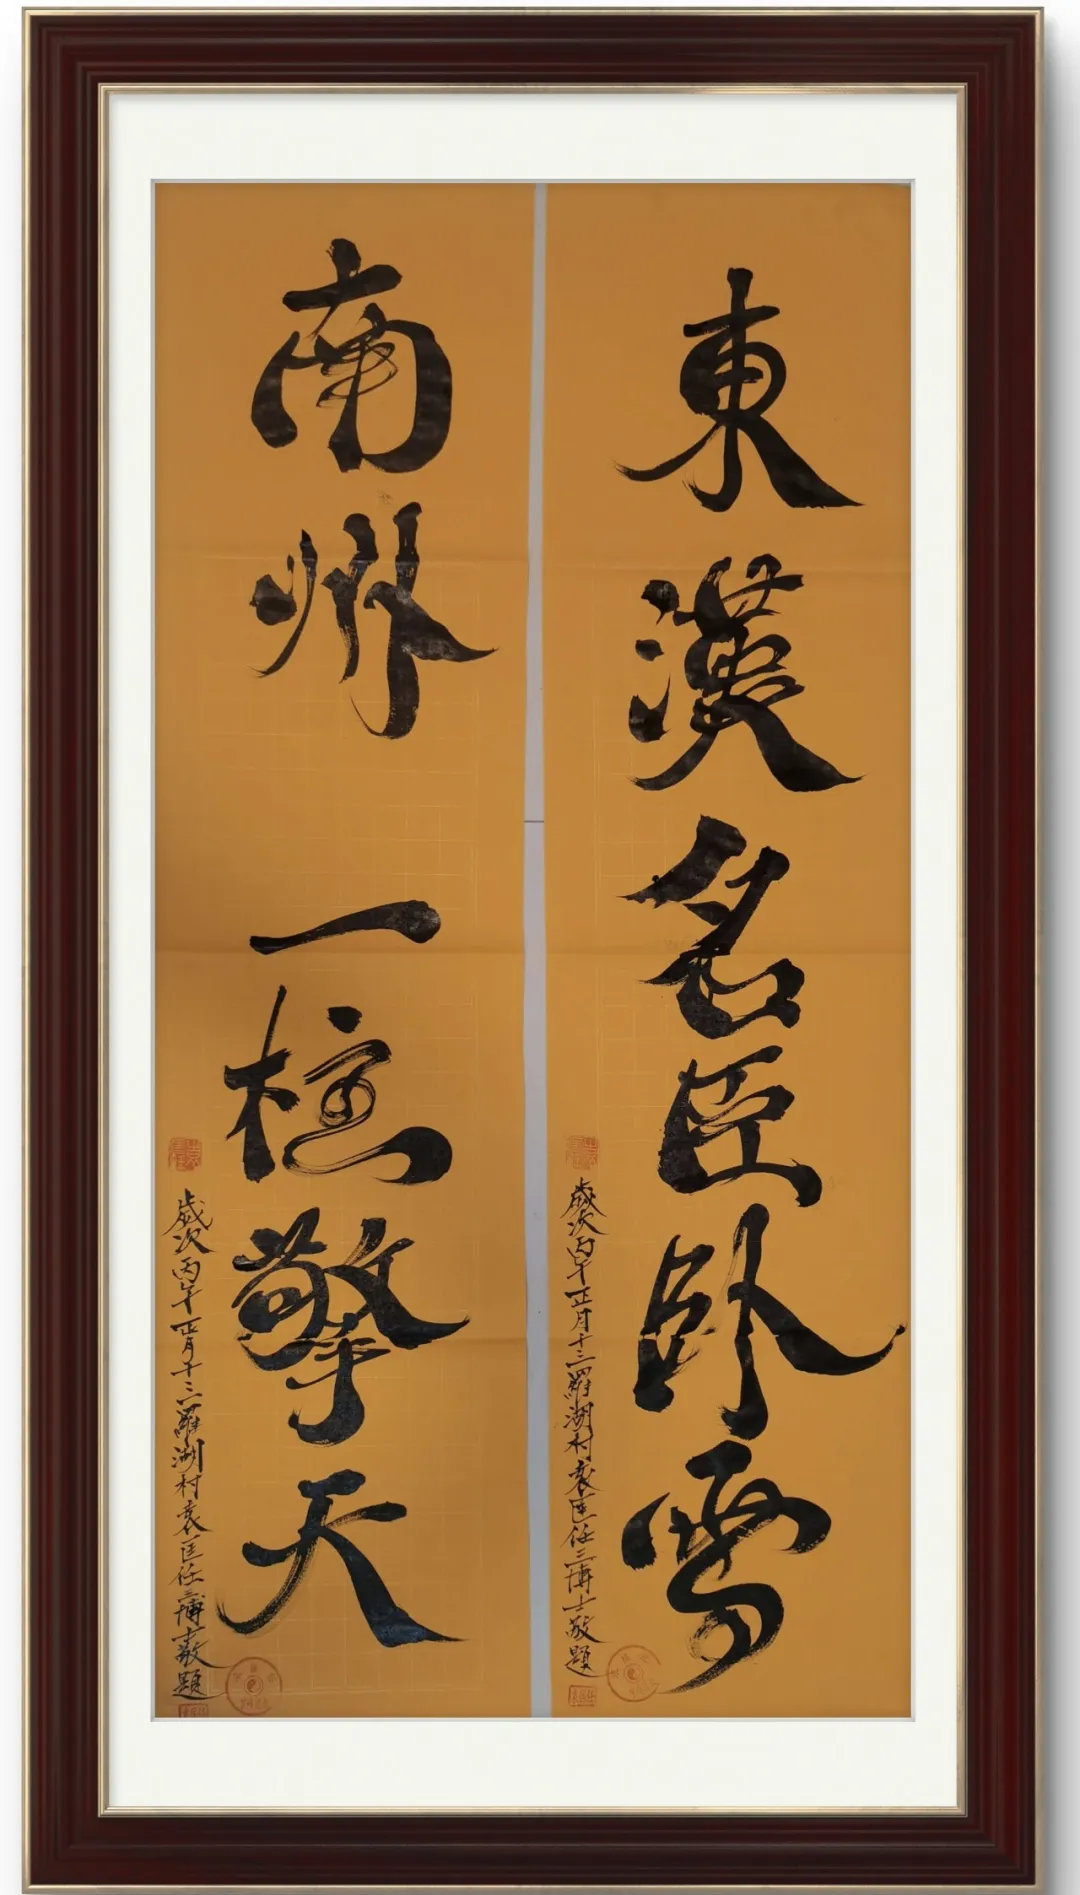 東漢名臣卧雪
歲次丙午正月十三羅湖村袁匡任三博士敬題
南州一柱擎天
歲次丙午正月十三羅湖村袁匡任三博士敬題